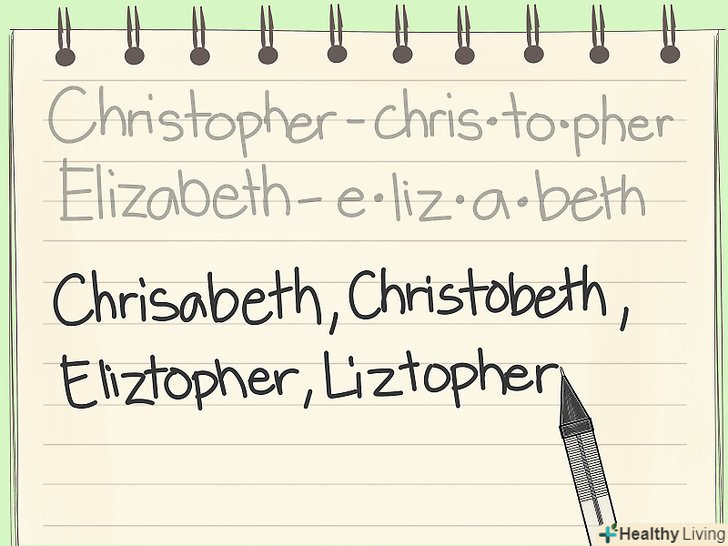 Christopher - chris•to•pher
Elizabeth - e•liz•a•beth
Chrisabeth, Christobeth,
Eliztopher, Liztopher
Healthy Living